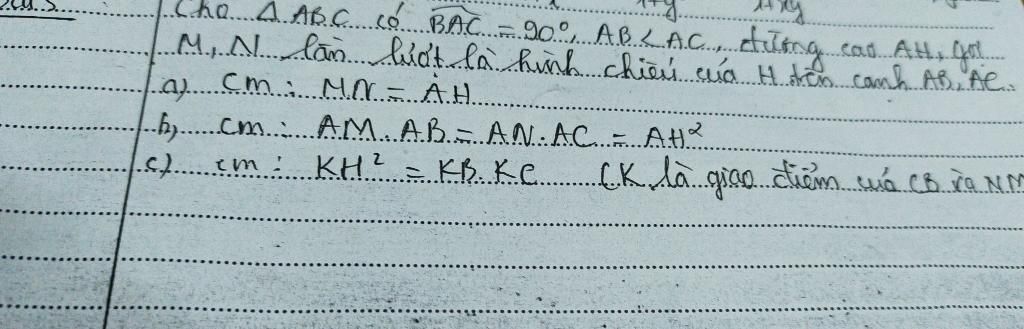 Cho Δ ABC có BAC = 90°, AB < AC, đường cao AH, gọi
M, N lần lượt là hình chiếu của H trên cạnh AB, AC.
a) Cm: MN = AH
b) cm: AM.AB = AN.AC = AH²
c) cm: KH² = KB.KC (K là giao điểm của CB và NM